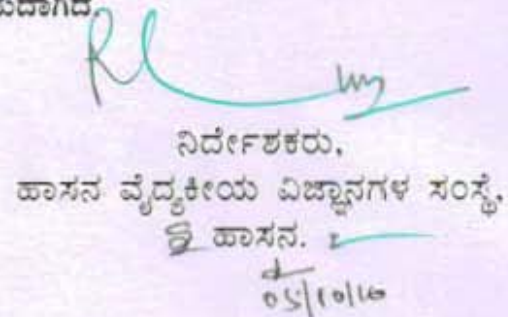 ನಿರ್ದೇಶಕರು,
ಹಾಸನ ವೈದ್ಯಕೀಯ ವಿಜ್ಞಾನಗಳ ಸಂಸ್ಥೆ,
ಹಾಸನ.
05/10/16